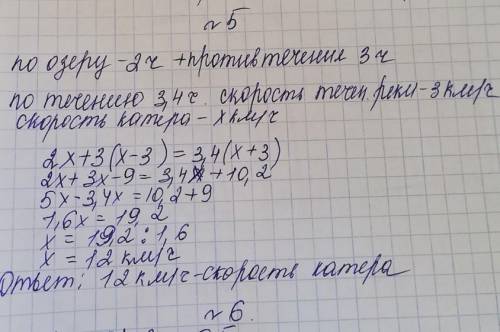 №5
по озеру - 2ч + против течения 3ч
по течению 3,4ч. скорость течен. реки - 3 км/ч
скорость катера - х км/ч
2х + 3(х-3) = 3,4(х+3)
2х + 3х - 9 = 3,4х + 10,2
5х - 3,4х = 10,2 + 9
1,6х = 19,2
х = 19,2 : 1,6
х = 12 км/ч
Ответ: 12 км/ч - скорость катера
№6.